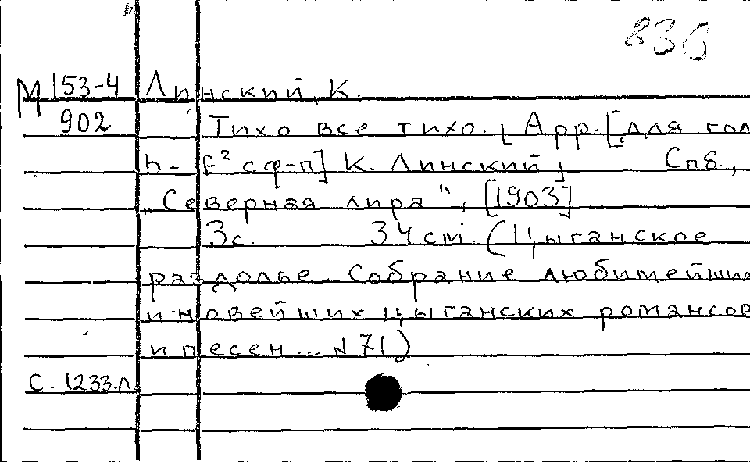 830
М 153-4 Линский, К.
902 Тихо все тихо. [Арр. [для гол
h - f² с ф-п] К. Линский] Спб.,
„Северная лира", [1903]
3с. 34 cm (Цыганское
раздолье. Собрание любимейших
и новейших цыганских романсов
и песен... N 71)
С. 1233.п